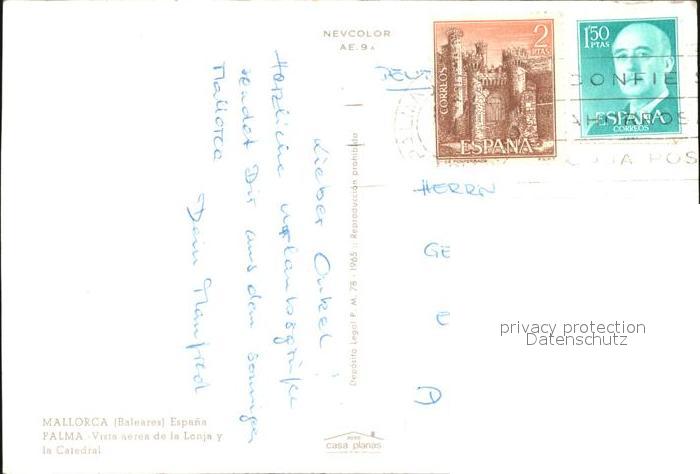 NEVCOLOR
AE. 9 A
2
PTAS
CORREOS
ESPAÑA
1'50
PTAS
ESPAÑA
CORREOS
CONFIE
AHORROS
POS
Lieber Onkel!
Herzliche Urlaubsgrüße
sendet Dir aus dem sonnigen
Mallorca
Dein Manfred
HERRN
GE
Depósito Legal P. M. 78 - 1965 :: Reproducción prohibida
MALLORCA (Baleares) España
PALMA.-Vista aérea de la Lonja y
la Catedral
casa planas
privacy protection
Datenschutz